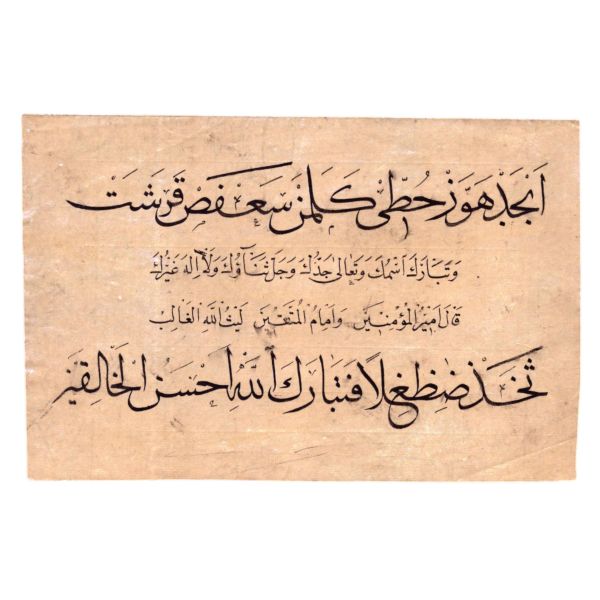 ابجد هوز حطي كلمن سعفص قرشت
وتبارك اسمك وتعالى جدك وجل ثناؤك ولا اله غيرك
قال امير المؤمنين وامام المتقين ليث الله الغالب
ثخذ ضظغلا فتبارك الله احسن الخالقين